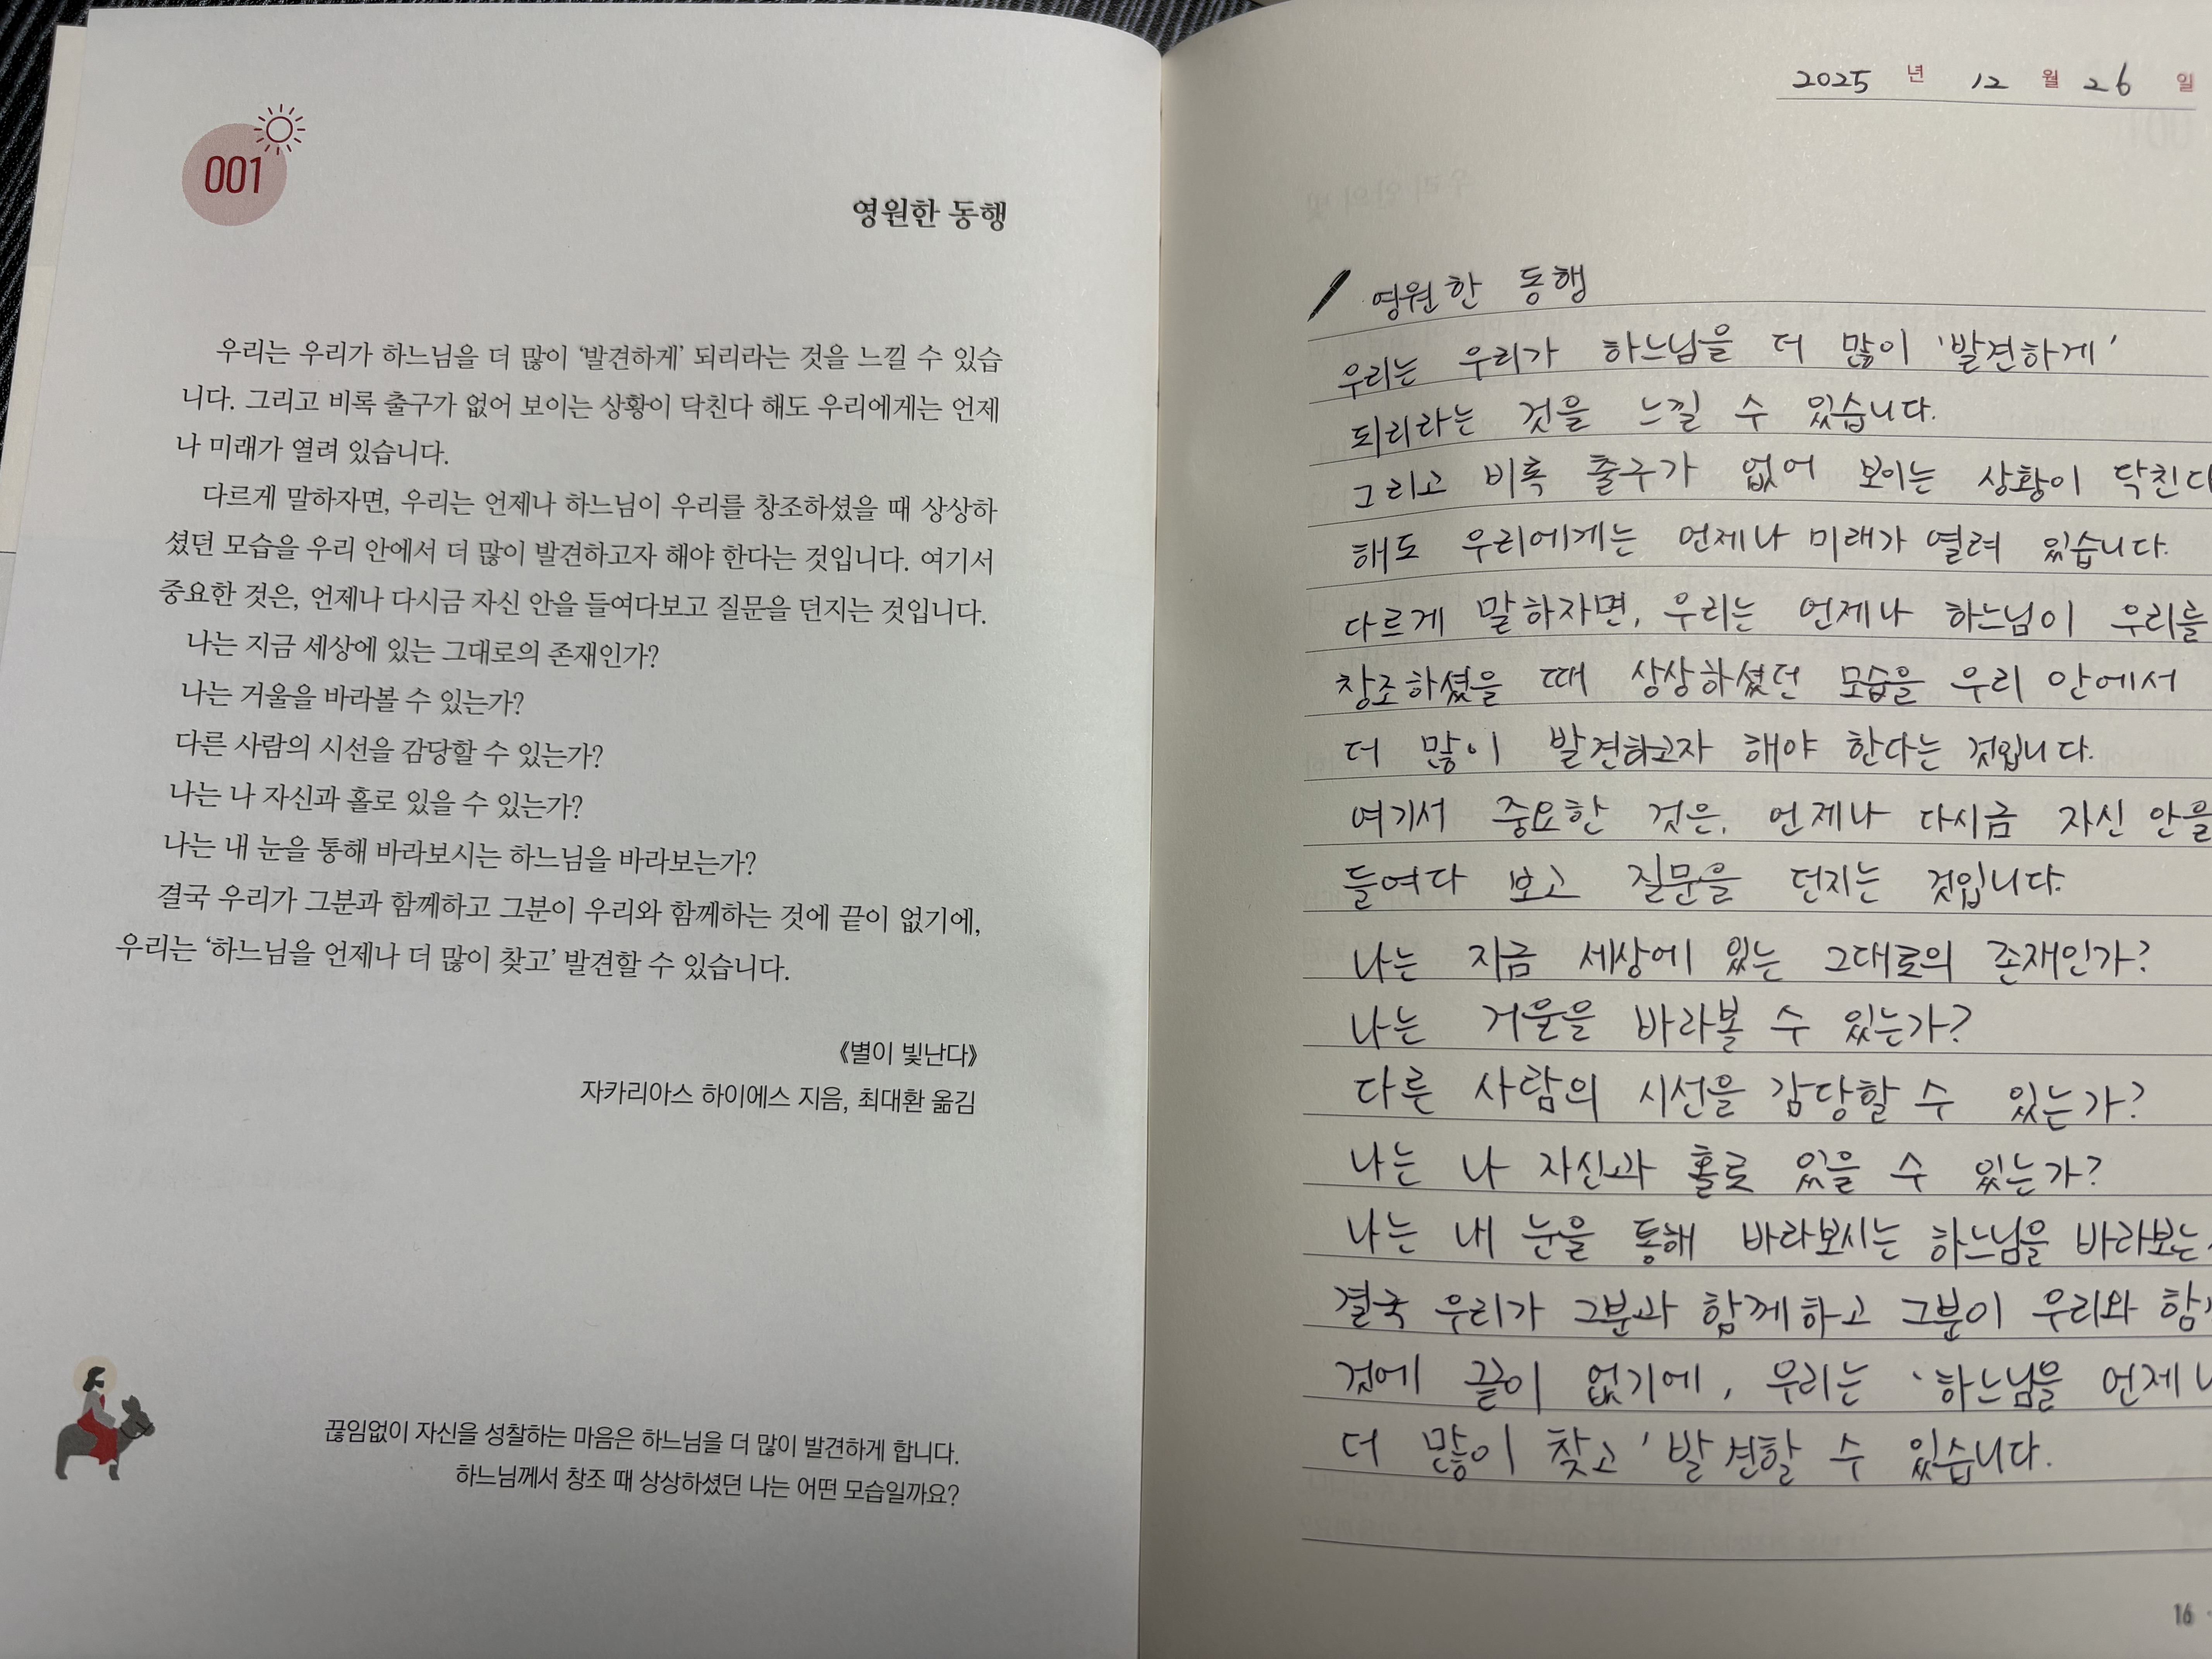 001
영원한 동행
우리는 우리가 하느님을 더 많이 ‘발견하게’ 되리라는 것을 느낄 수 있습
니다. 그리고 비록 출구가 없어 보이는 상황이 닥친다 해도 우리에게는 언제
나 미래가 열려 있습니다.
다르게 말하자면, 우리는 언제나 하느님이 우리를 창조하셨을 때 상상하
셨던 모습을 우리 안에서 더 많이 발견하고자 해야 한다는 것입니다. 여기서
중요한 것은, 언제나 다시금 자신 안을 들여다보고 질문을 던지는 것입니다.
나는 지금 세상에 있는 그대로의 존재인가?
나는 거울을 바라볼 수 있는가?
다른 사람의 시선을 감당할 수 있는가?
나는 나 자신과 홀로 있을 수 있는가?
나는 내 눈을 통해 바라보시는 하느님을 바라보는가?
결국 우리가 그분과 함께하고 그분이 우리와 함께하는 것에 끝이 없기에,
우리는 ‘하느님을 언제나 더 많이 찾고’ 발견할 수 있습니다.
《별이 빛난다》
자카리아스 하이에스 지음, 최대환 옮김
끊임없이 자신을 성찰하는 마음은 하느님을 더 많이 발견하게 합니다.
하느님께서 창조 때 상상하셨던 나는 어떤 모습일까요?
2025 년 12 월 26 일
영원한 동행
우리는 우리가 하느님을 더 많이 ‘발견하게’
되리라는 것을 느낄 수 있습니다.
그리고 비록 출구가 없어 보이는 상황이 닥친다
해도 우리에게는 언제나 미래가 열려 있습니다.
다르게 말하자면, 우리는 언제나 하느님이 우리를
창조하셨을 때 상상하셨던 모습을 우리 안에서
더 많이 발견하고자 해야 한다는 것입니다.
여기서 중요한 것은, 언제나 다시금 자신 안을
들여다 보고 질문을 던지는 것입니다.
나는 지금 세상에 있는 그대로의 존재인가?
나는 거울을 바라볼 수 있는가?
다른 사람의 시선을 감당할 수 있는가?
나는 나 자신과 홀로 있을 수 있는가?
나는 내 눈을 통해 바라보시는 하느님을 바라보는
결국 우리가 그분과 함께하고 그분이 우리와
것에 끝이 없기에, 우리는 ‘하느님을 언제나
더 많이 찾고’ 발견할 수 있습니다.
16